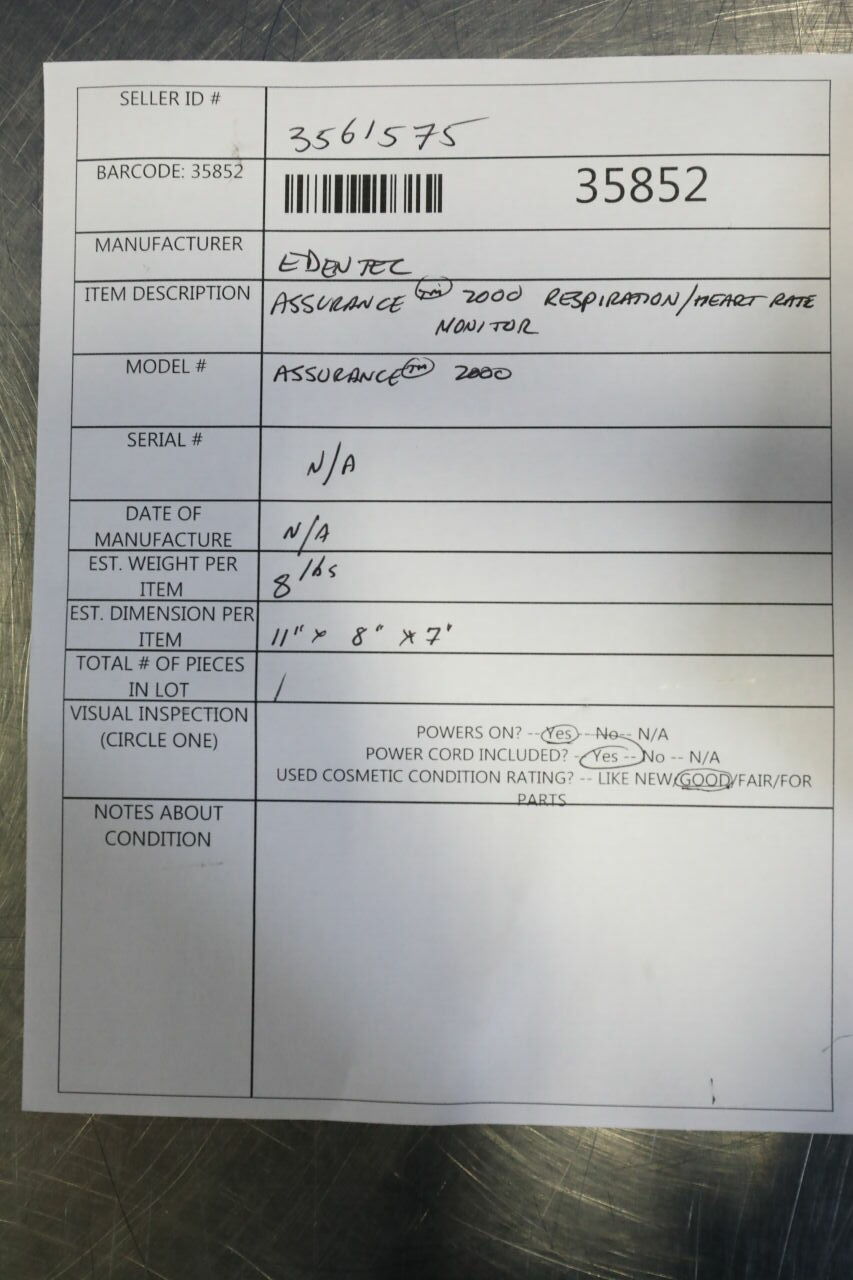 SELLER ID #
3561575
BARCODE: 35852
35852
MANUFACTURER
EDENTEC
ITEM DESCRIPTION
ASSURANCE TM 2000 RESPIRATION/HEART RATE
MONITOR
MODEL #
ASSURANCE TM 2000
SERIAL #
N/A
DATE OF
MANUFACTURE
N/A
EST. WEIGHT PER
ITEM
8 lbs
EST. DIMENSION PER
ITEM
11" x 8" x 7'
TOTAL # OF PIECES
IN LOT
1
VISUAL INSPECTION
(CIRCLE ONE)
POWERS ON? -- Yes -- No -- N/A
POWER CORD INCLUDED? - Yes -- No -- N/A
USED COSMETIC CONDITION RATING? -- LIKE NEW/GOOD/FAIR/FOR
PARTS
NOTES ABOUT
CONDITION